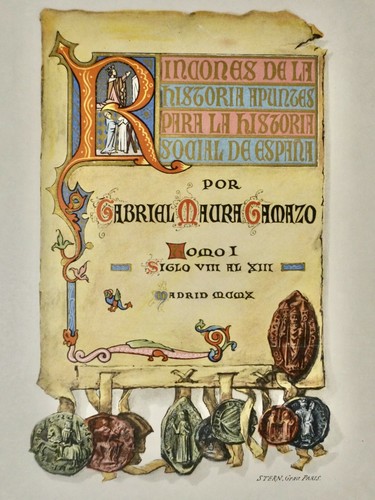 RINCONES DE LA
HISTORIA APUNTES
PARA LA HISTORIA
SOCIAL DE ESPAÑA
POR
GABRIEL MAURA GAMAZO
TOMO I
SIGLO VIII AL XIII
MADRID MCMX
STERN, GRAV. PARIS